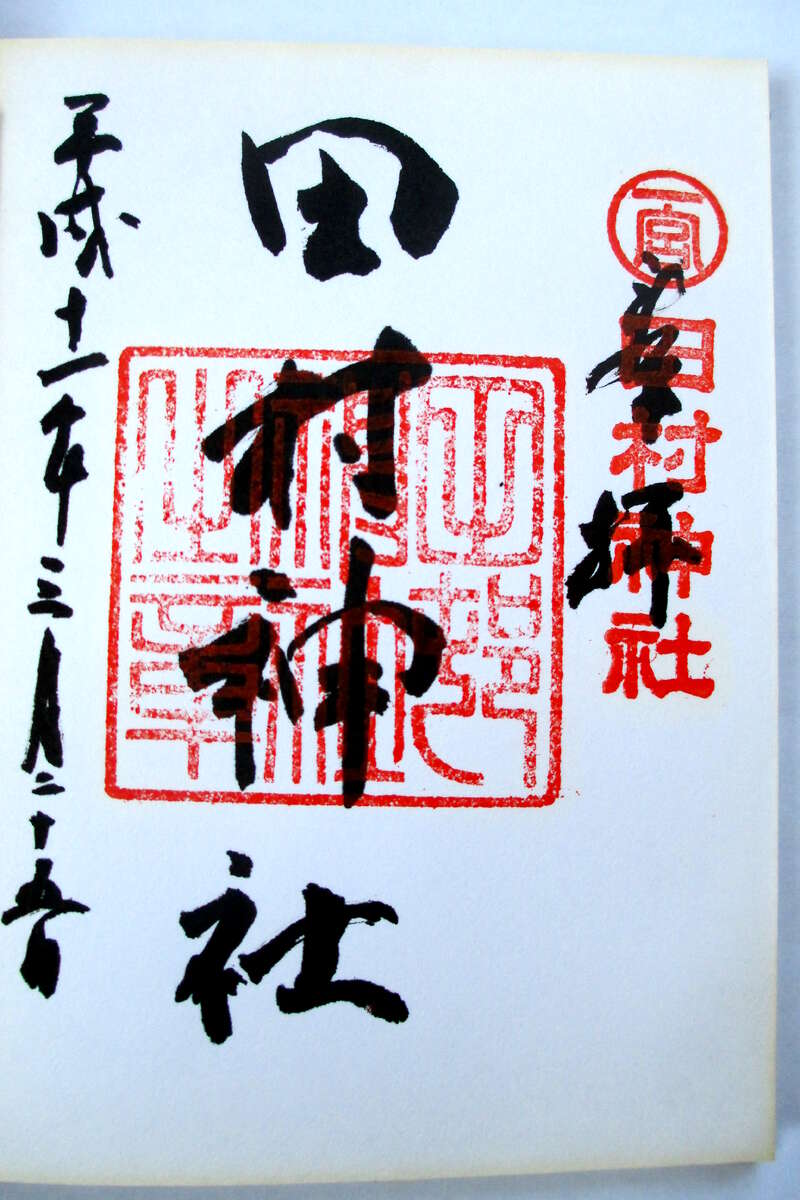 一宮
田村神社
奉拝
田村神社
神社
之章
平成十一年三月二十五日